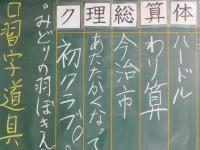 体
ハードル
算
わり算
総
今治市
理
あたたかくなって
ク
初クラブ。
・みどりの羽ぼきん
習字道具